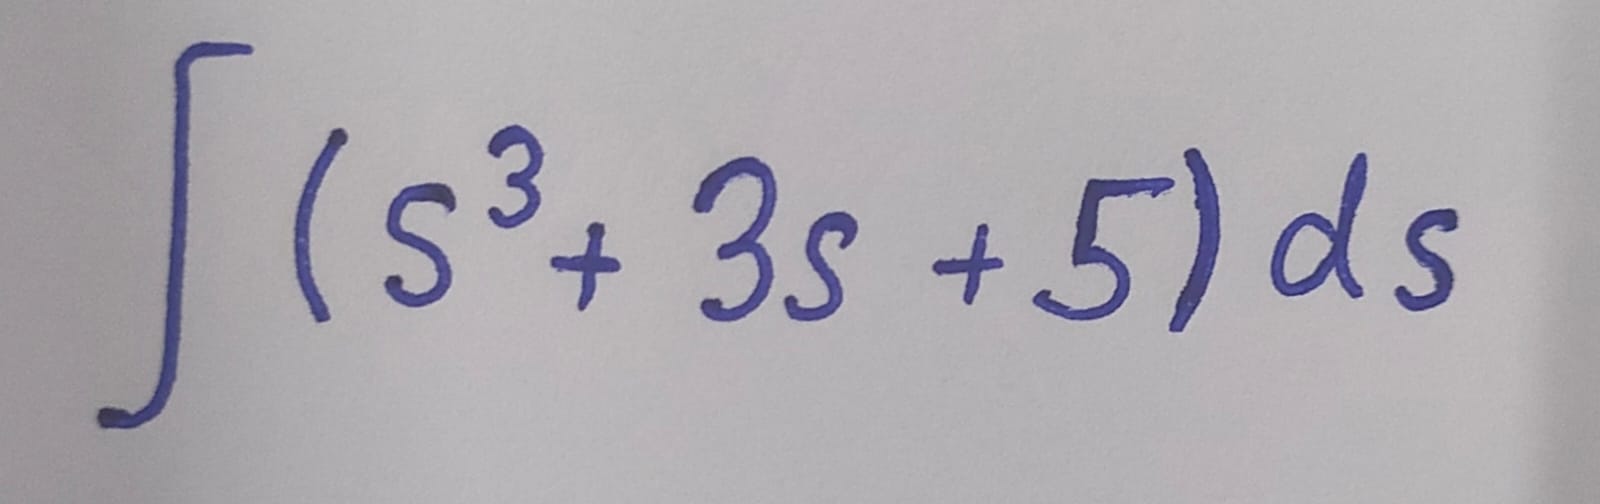 ∫(s³+ 3s +5) ds